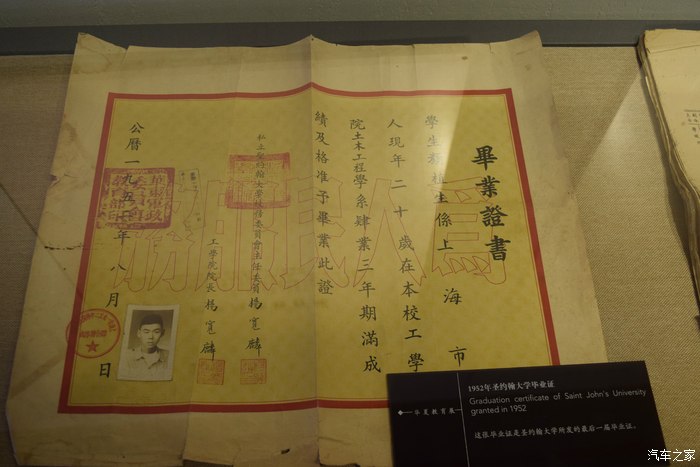 畢業證書
學生穆植生係上海市
人現年二十歲在本校工學
院土木工程學系肄業三年期滿成
績及格准予畢業此證
私立聖約翰大學校務委員會主任委員楊寬麟
工學院院長楊寬麟
公曆一九五二年八月日
為人民服務
1952年圣约翰大学毕业证
Graduation certificate of Saint John's University
granted in 1952
华夏教育展
这张毕业证是圣约翰大学所发的最后一届毕业证。
汽车之家